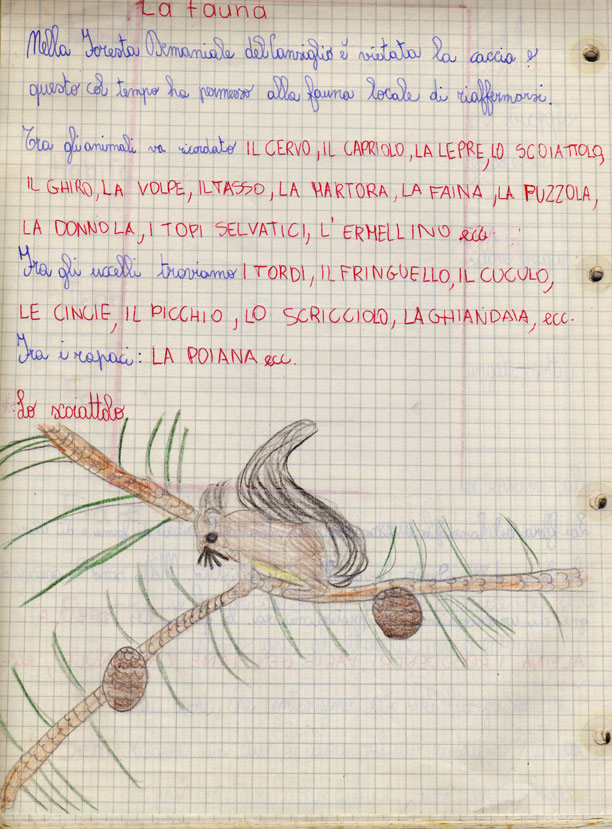 La fauna
Nella Foresta Demaniale del Cansiglio è vietata la caccia e
questo col tempo ha permesso alla fauna locale di riaffermarsi.
Tra gli animali va ricordato IL CERVO, IL CAPRIOLO, LA LEPRE, LO SCOIATTOLO,
IL GHIRO, LA VOLPE, IL TASSO, LA MARTORA, LA FAINA, LA PUZZOLA,
LA DONNOLA, I TOPI SELVATICI, L'ERMELLINO ecc.
Fra gli uccelli troviamo I TORDI, IL FRINGUELLO, IL CUCULO,
LE CINCIE, IL PICCHIO, LO SCRICCIOLO, LA GHIANDAIA, ecc.
Fra i rapaci: LA POIANA ecc.
Lo scoiattolo